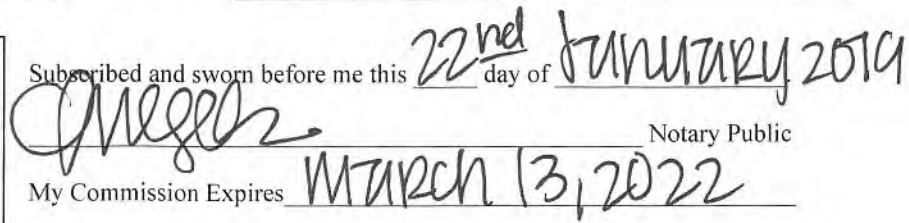 Subscribed and sworn before me this 22nd day of January 2019
Notary Public
My Commission Expires March 13, 2022